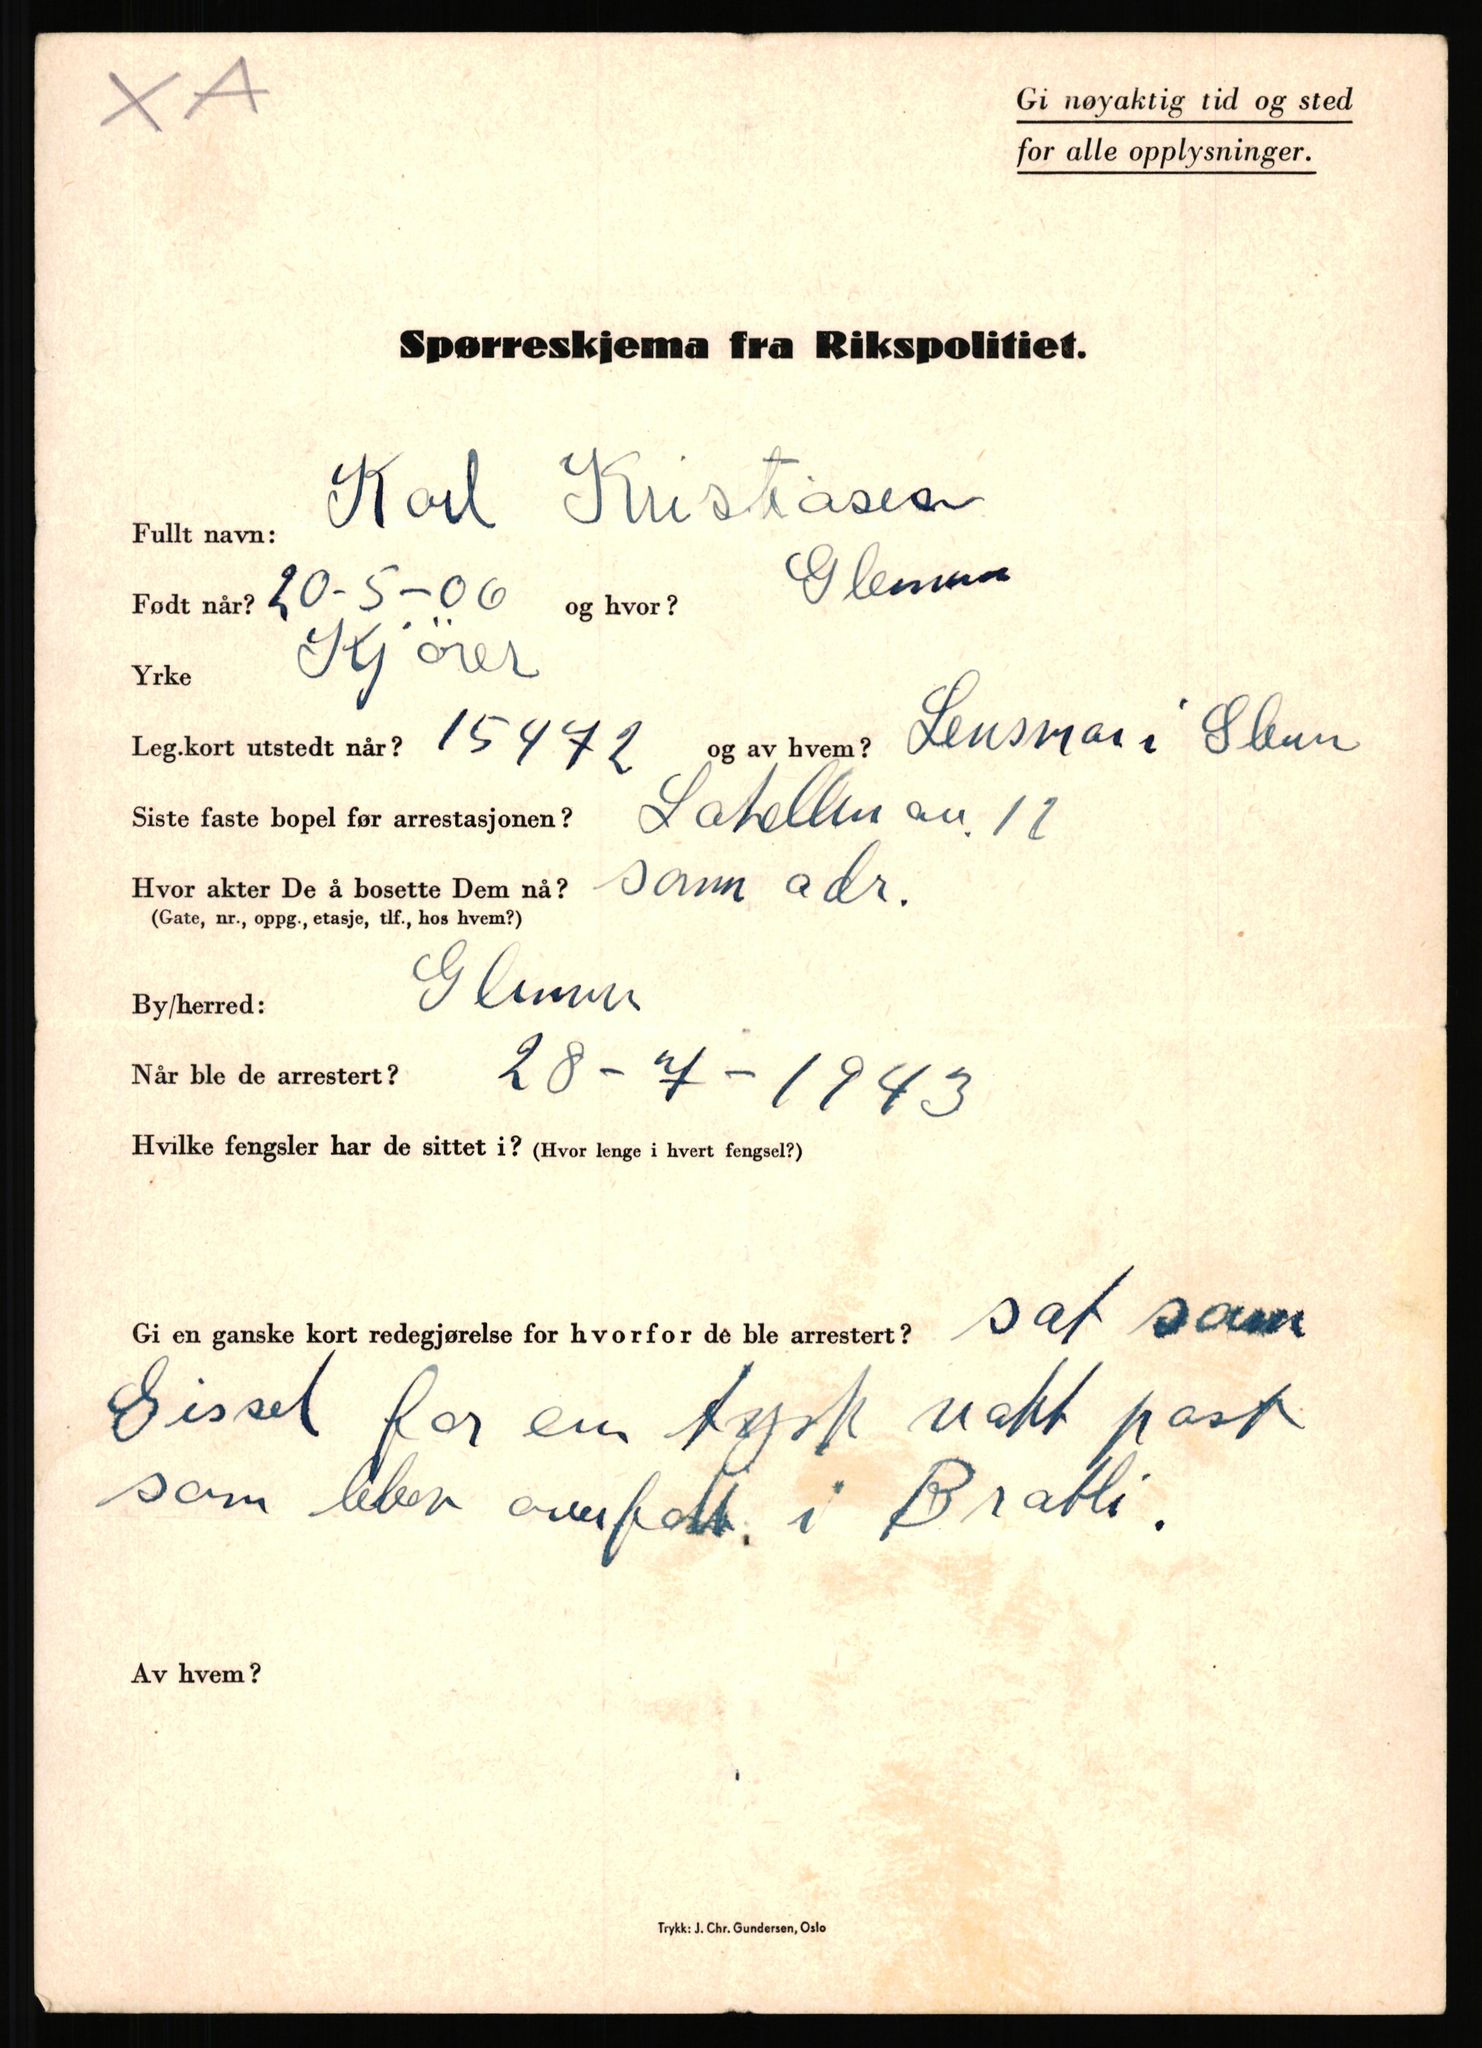 XA
Gi nøyaktig tid og sted
for alle opplysninger.
Spørreskjema fra Rikspolitiet.
Fullt navn: Karl Kristiasen
Født når? 20-5-06 og hvor? Glemmen
Yrke Kjörer
Leg.kort utstedt når? 15472 og av hvem? Lensman i Glemm
Siste faste bopel før arrestasjonen? av. 12
Hvor akter De å bosette Dem nå? samm adr.
(Gate, nr., oppg., etasje, tlf., hos hvem?)
By/herred: Glemmen
Når ble de arrestert? 28-7-1943
Hvilke fengsler har de sittet i? (Hvor lenge i hvert fengsel?)
Gi en ganske kort redegjørelse for hvorfor de ble arrestert? sat som
Gissel for en tysk vakt post
som blev overfalt. i Bratli.
Av hvem?
Trykk: J. Chr. Gundersen, Oslo